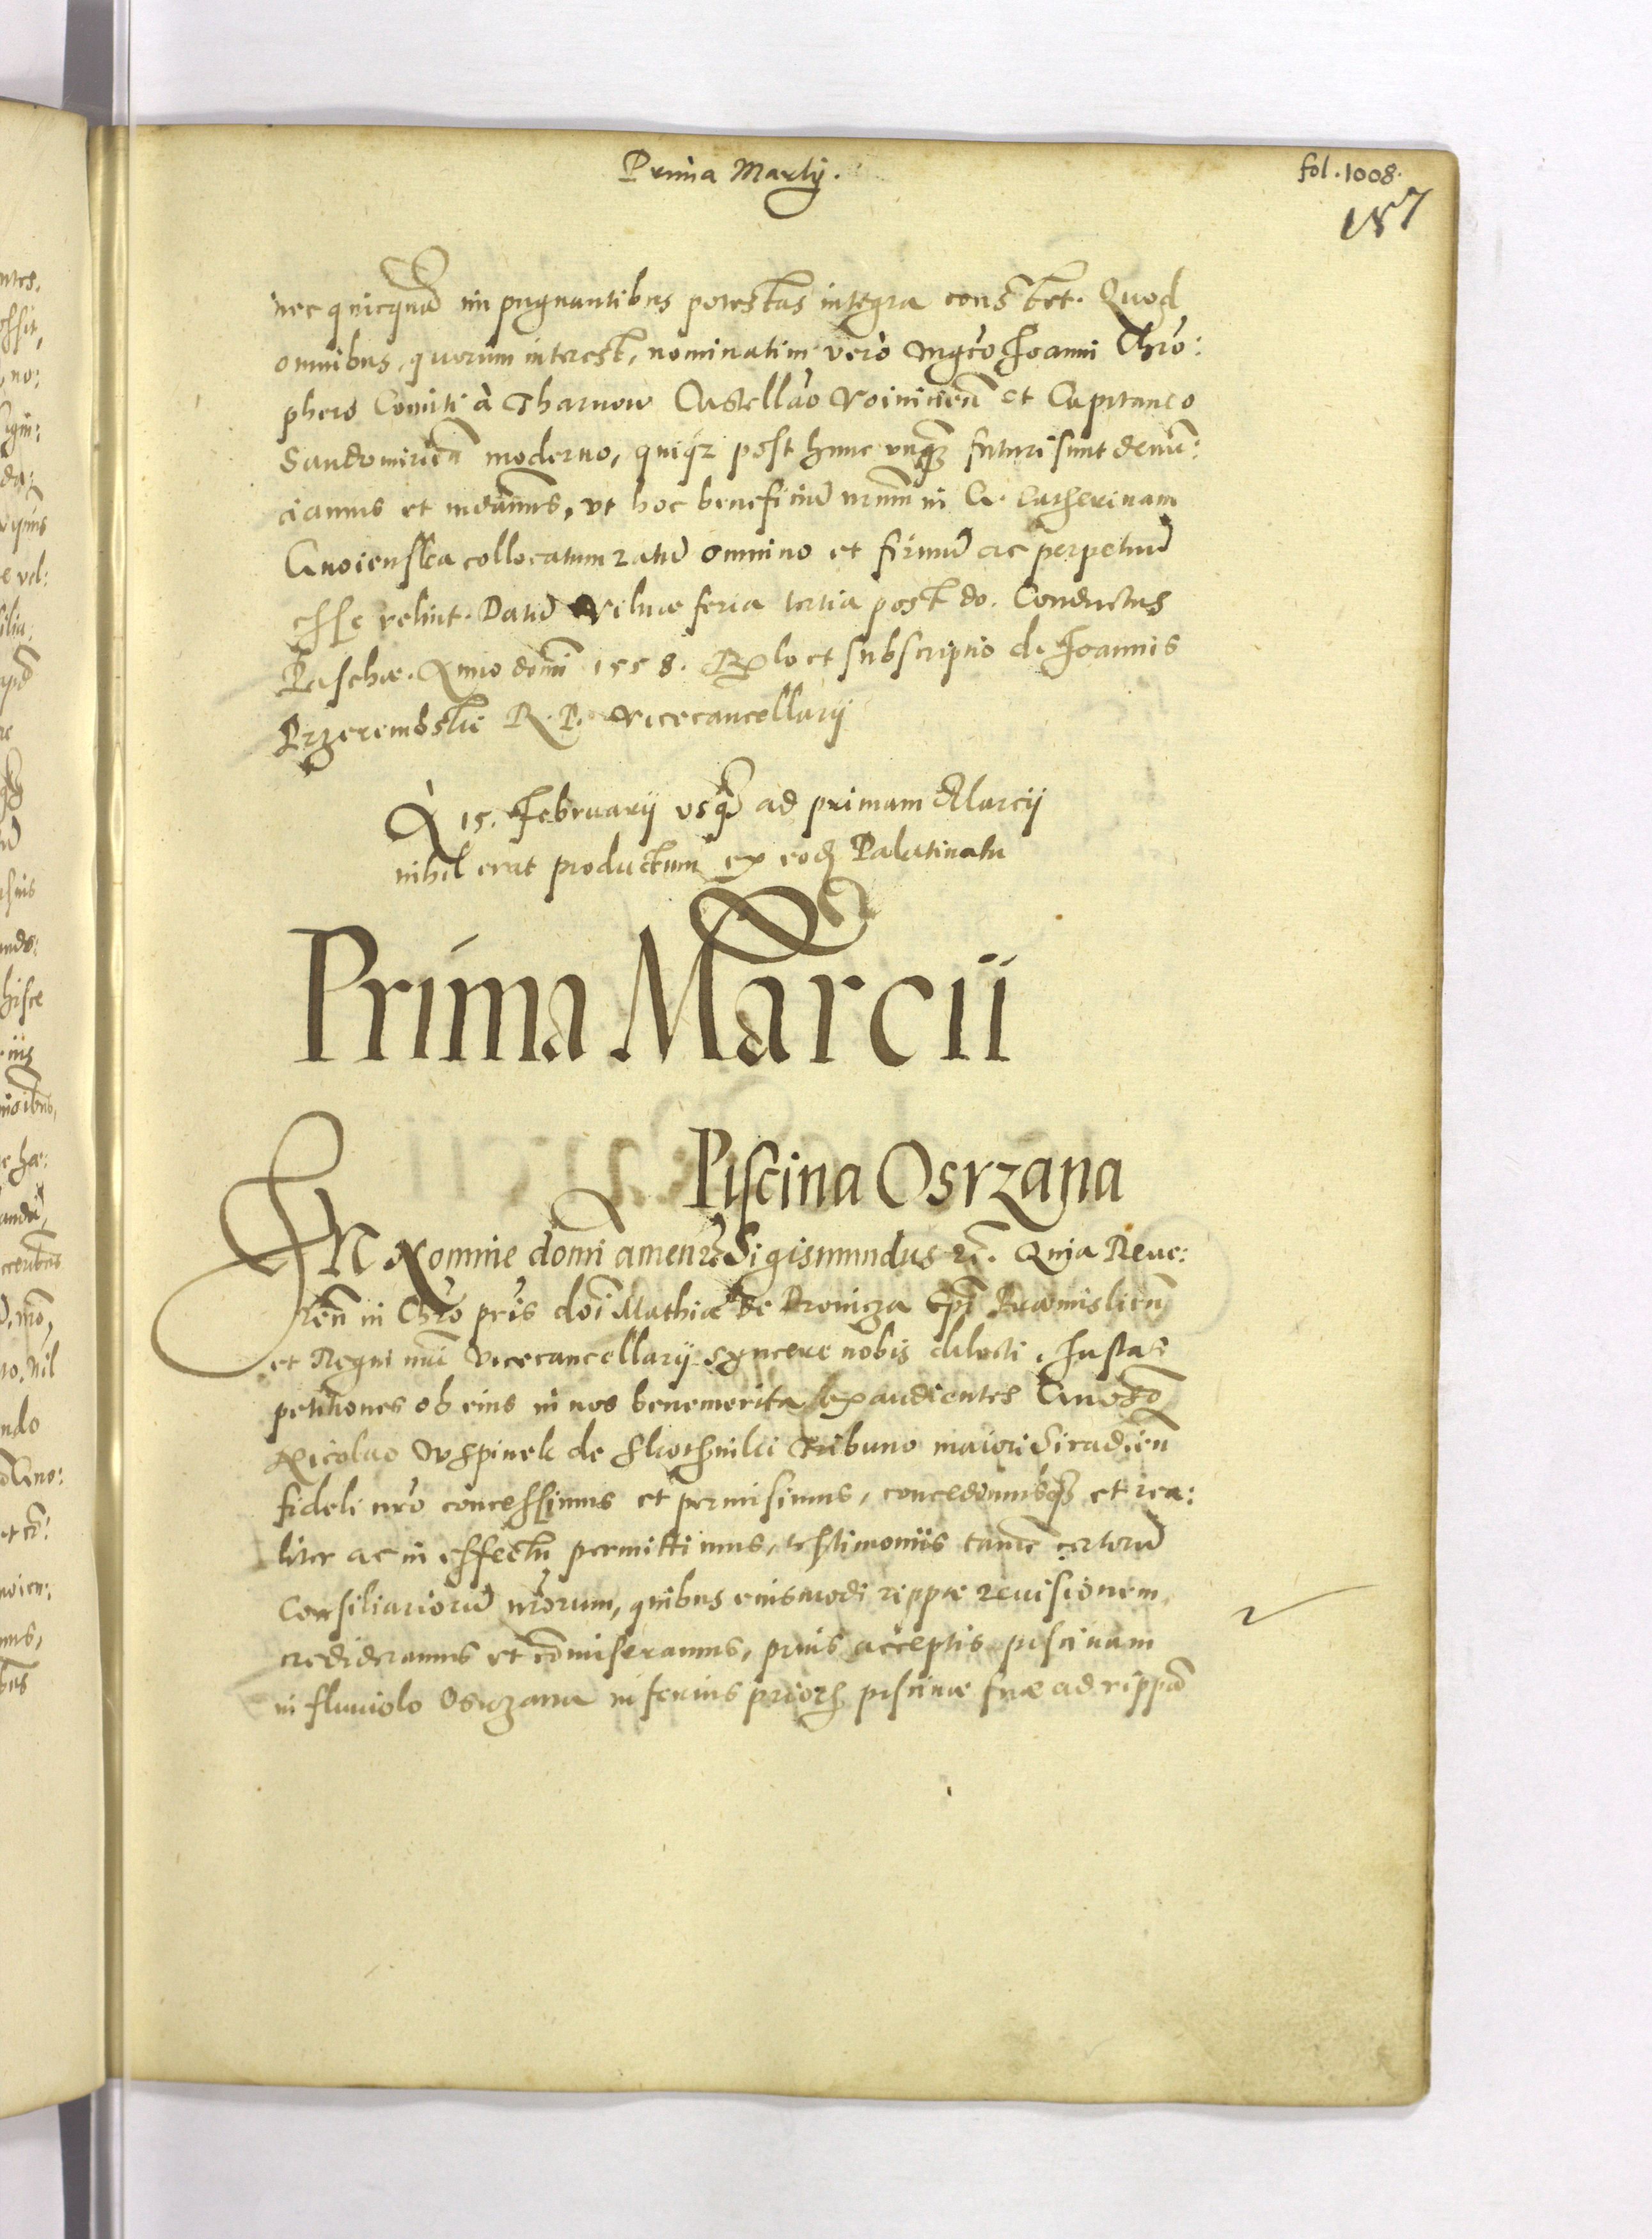 Prima Martij.
fol. 1008.
187
nec quicquā impugnantibus potestas integra constet. Quod
omnibus, quorum interest, nominatim vero Mgco Joanni Chro:
phero Comiti à Tharnow Castellāo Voiniceñ et Capitaneo
Sandomirieñ moderno, quiqz post hunc unqz futuri sunt denū:
ciamus et mdamus, ut hoc beneficiū nrum in G. Catherinam
Gnoienska collocatum ratū omnino et firmū ac perpetuū
esse velint. Datū Vilnæ feria tertia post do. Conductus
Paschæ. Anno domi 1558. Rlo et subscriptio d. Joannis
Przerembski R. P. Vicecancellarij
A 15. February usqz ad primam Marcij
nihil erat productum ex eod Palatinatu
Prima Marcii
Piscina Osrzana
IN Nomine domi amen. Sigismundus rc. Quia Reue:
reñ in Chro pris doi Mathiæ de Dronicza Epi Præmislieñ
et Regni nri Vicecancellarij syncere nobis dilecti, justas
petitiones ob eius in nos benemerita exaudientes Gnoso
Nicolao Wspinek de Skothniki Tribuno maiori Siradieñ
fideli nro concessimus et permisimus, concedimusqz et rea:
liter ac in effectu permittimus, testimoniis tamē certorū
Consiliariorū nrorum, quibus eiusmodi rippæ reuisionem
credideramus et cōmiseramus, prius acceptis piscinam
in fluuiolo Osrzana inferius prioris piscinæ suæ ad rippā